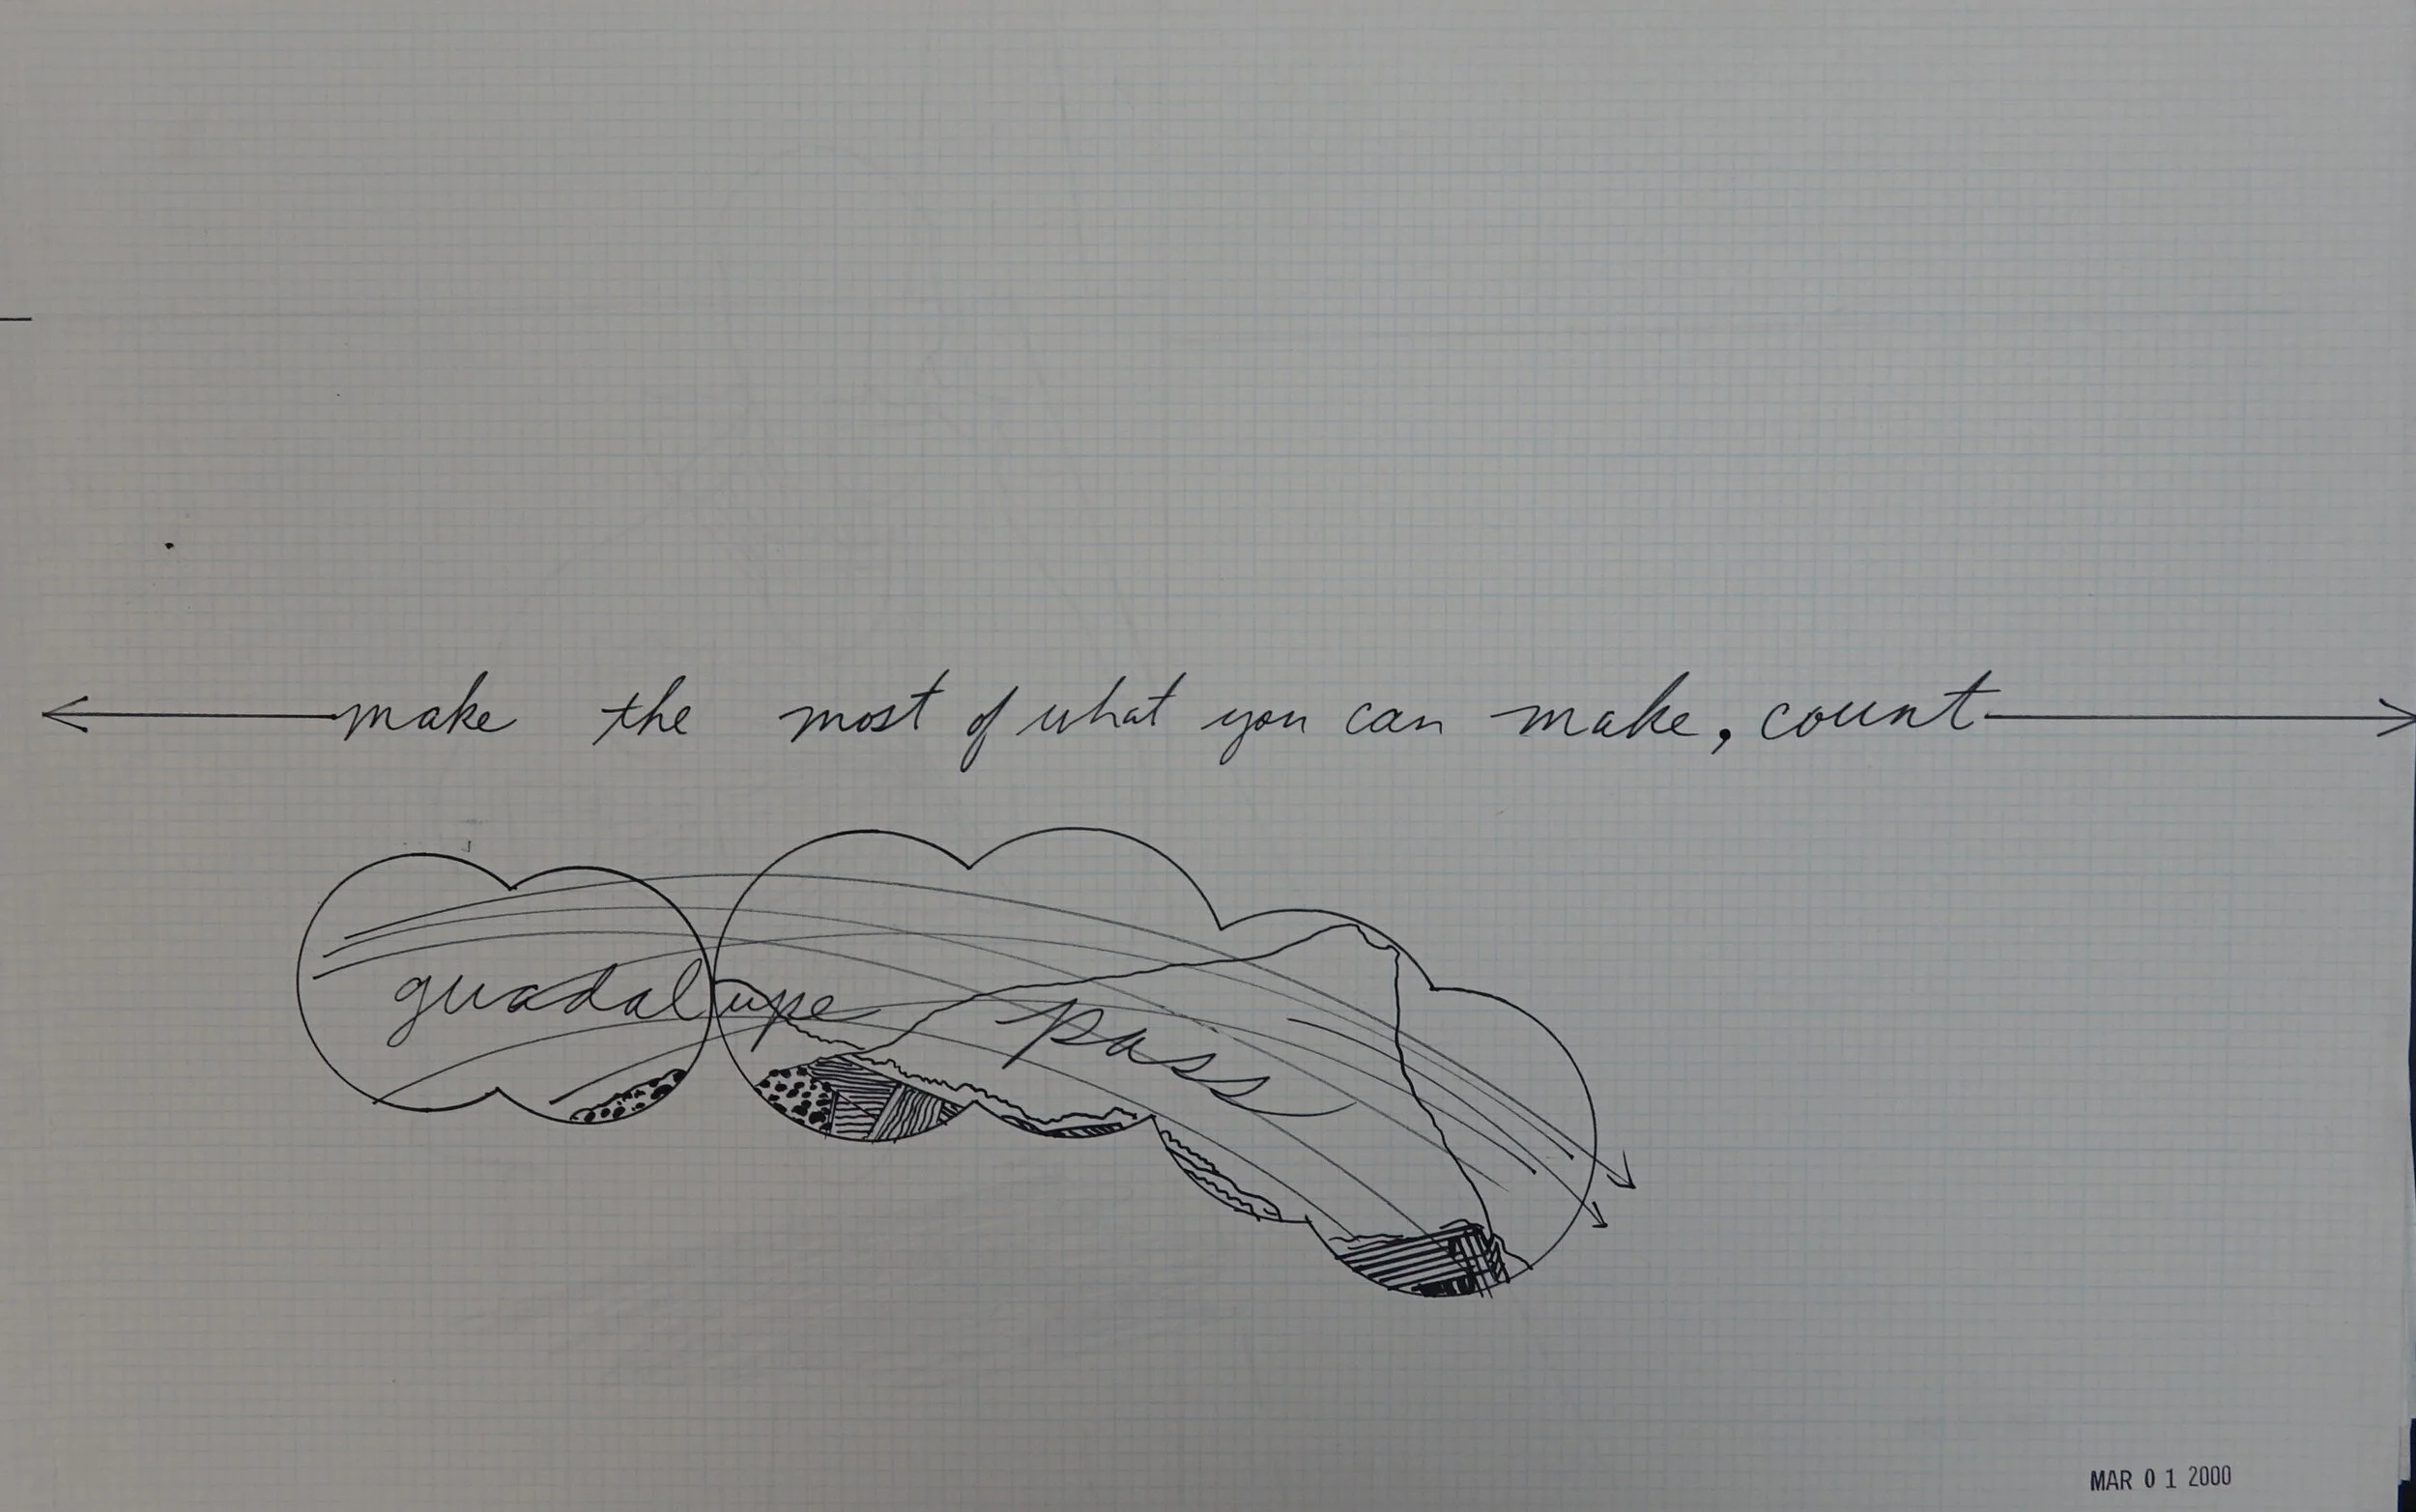 make the most of what you can make, count
guadalupe pass
MAR 01 2000